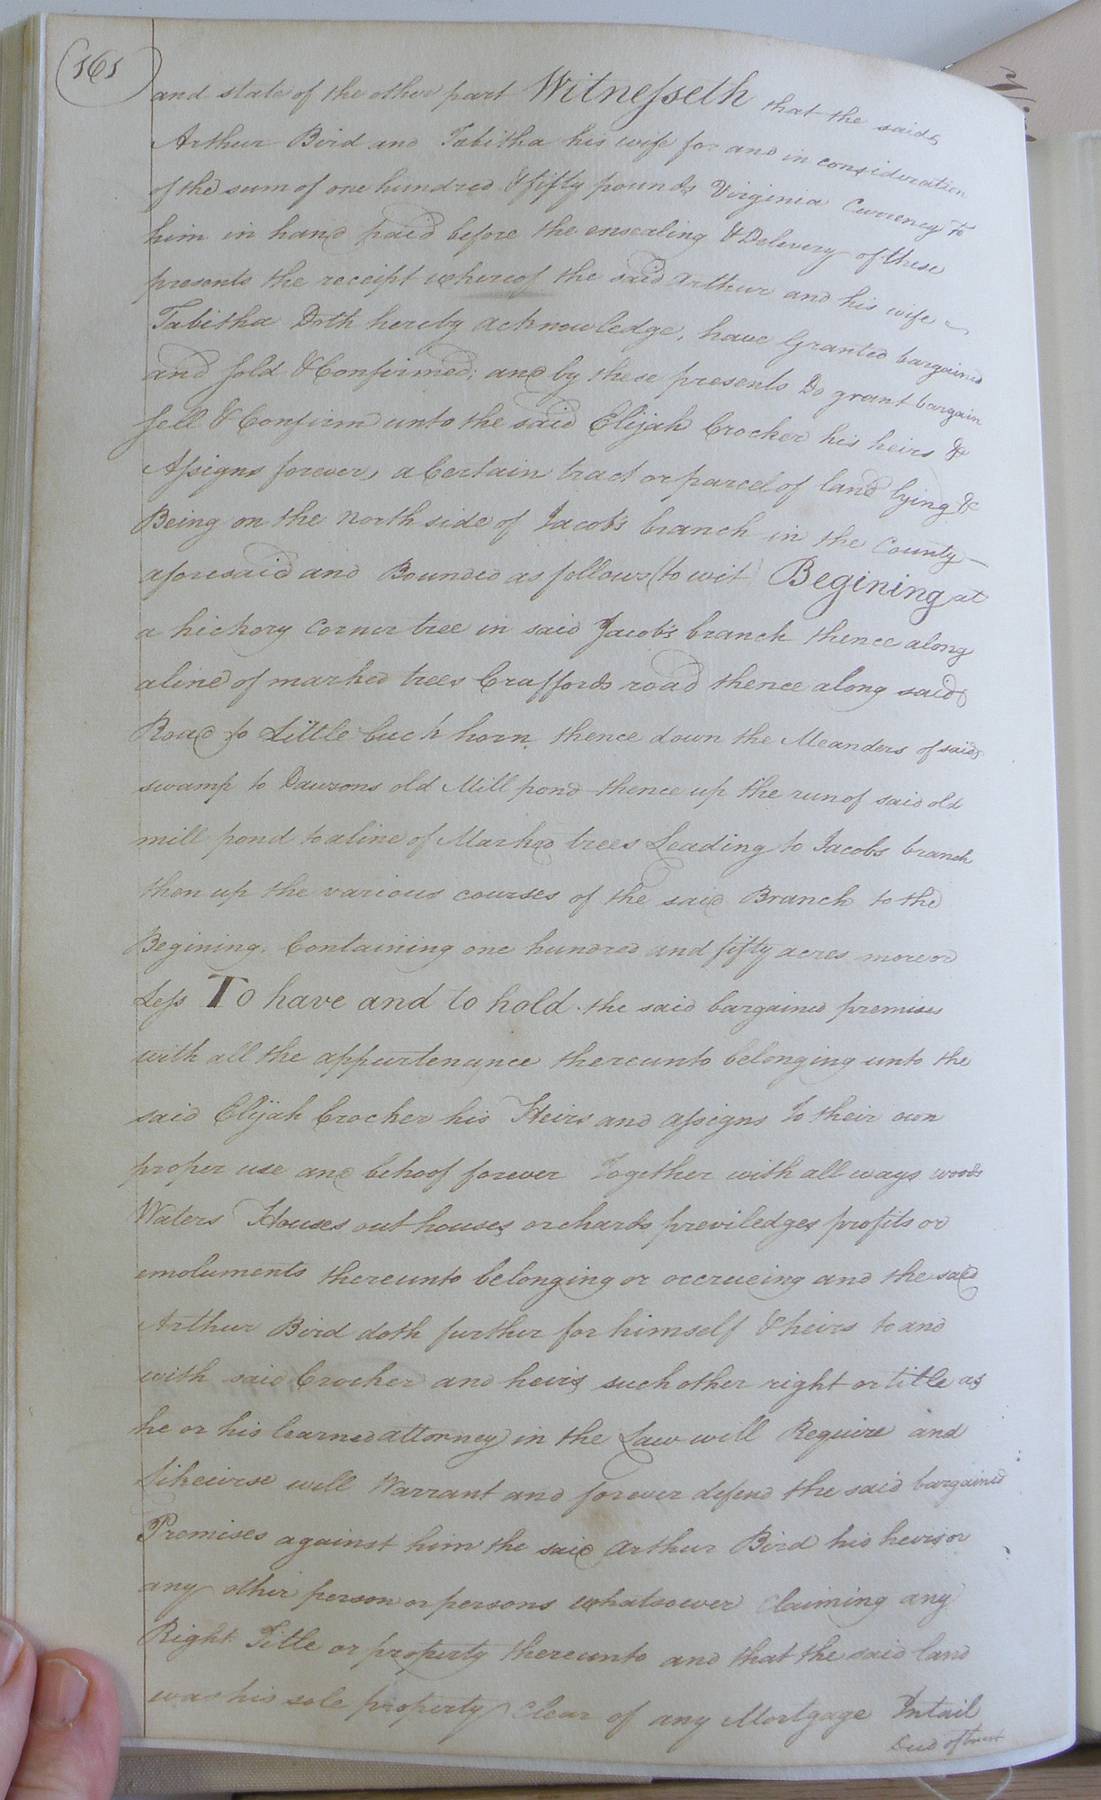 161
and state of the other part Witnesseth that the said
Arthur Bird and Tabitha his wife for and in consideration
of the sum of one hundred & fifty pounds Virginia Currency To
him in hand paid before the ensealing & Delivery of these
presents the receipt whereof the said Arthur and his wife
Tabitha Doth hereby acknowledge, have Granted bargained
and Sold & Confirmed; and by these presents Do grant bargain
Sell & Confirm unto the said Elijah Crocker his heirs &
Assigns forever, a Certain tract or parcel of land lying &
Being on the north side of Jacobs branch in the County
aforesaid and Bounded as follows (to wit) Begining at
a hickory Corner tree in said Jacob's branch thence along
a line of marked trees Craffords road thence along said
Road to Little buck horn thence down the Meanders of said
swamp to Dawsons old Mill pond thence up the run of said old
mill pond to a line of Marked trees Leading to Jacobs branch
then up the various courses of the said Branch to the
Begining. Containing one hundred and fifty acres more or
Less To have and to hold the said bargained premises
with all the appurtenance thereunto belonging unto the
said Elijah Crocker his Heirs and assigns To their own
proper use and behoof forever Together with all ways woods
Waters Houses out houses orchards previledges profits or
emoluments thereunto belonging or accrueing and the said
Arthur Bird doth further for himself & heirs to and
with said Crocker and heirs such other right or title as
he or his learned attorney in the Law will Require and
Likewise will Warrant and forever defend the said bargained
Premises against him the said Arthur Bird his heirs or
any other person or persons whatsoever Claiming any
Right Title or property thereunto and that the said land
was his sole property Clear of any Mortgage Intail
Deed of trust